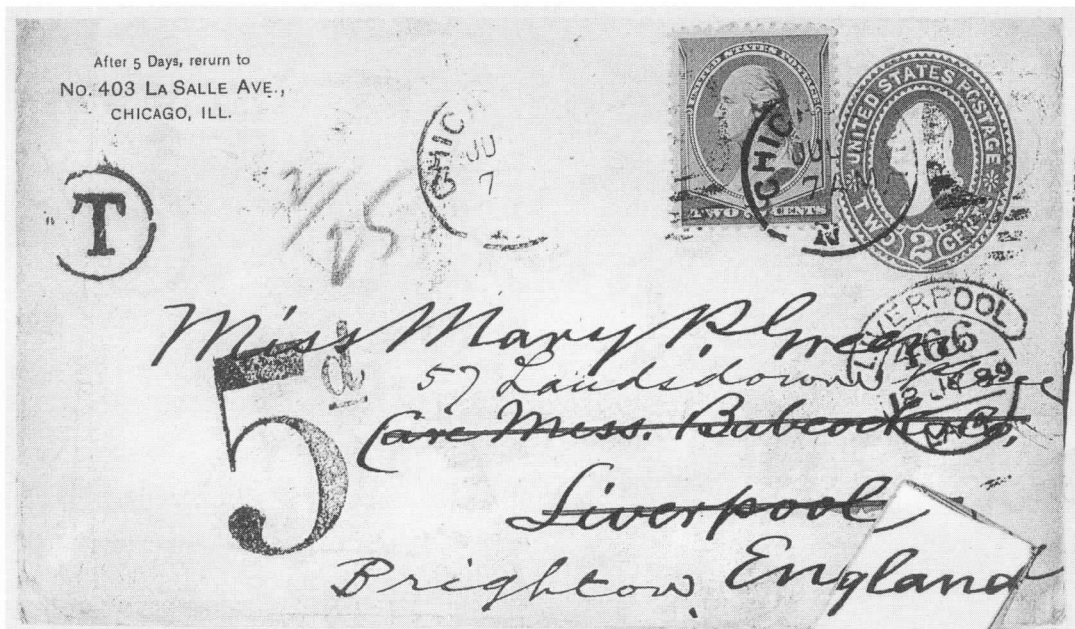 After 5 Days, rerurn to
No. 403 LA SALLE AVE.,
CHICAGO, ILL.
T
2/25
CHIC
JU
7
UNITED STATES POSTAGE
TWO CENTS
CHIC
JUL
7 AM
UNITED STATES POSTAGE
TWO 2 CENTS
LIVERPOOL
466
JY 89
Miss Mary P. Green
57 Laudsdowne
Care Miss. Babcock & Co,
5d
Liverpool
Brighton, England